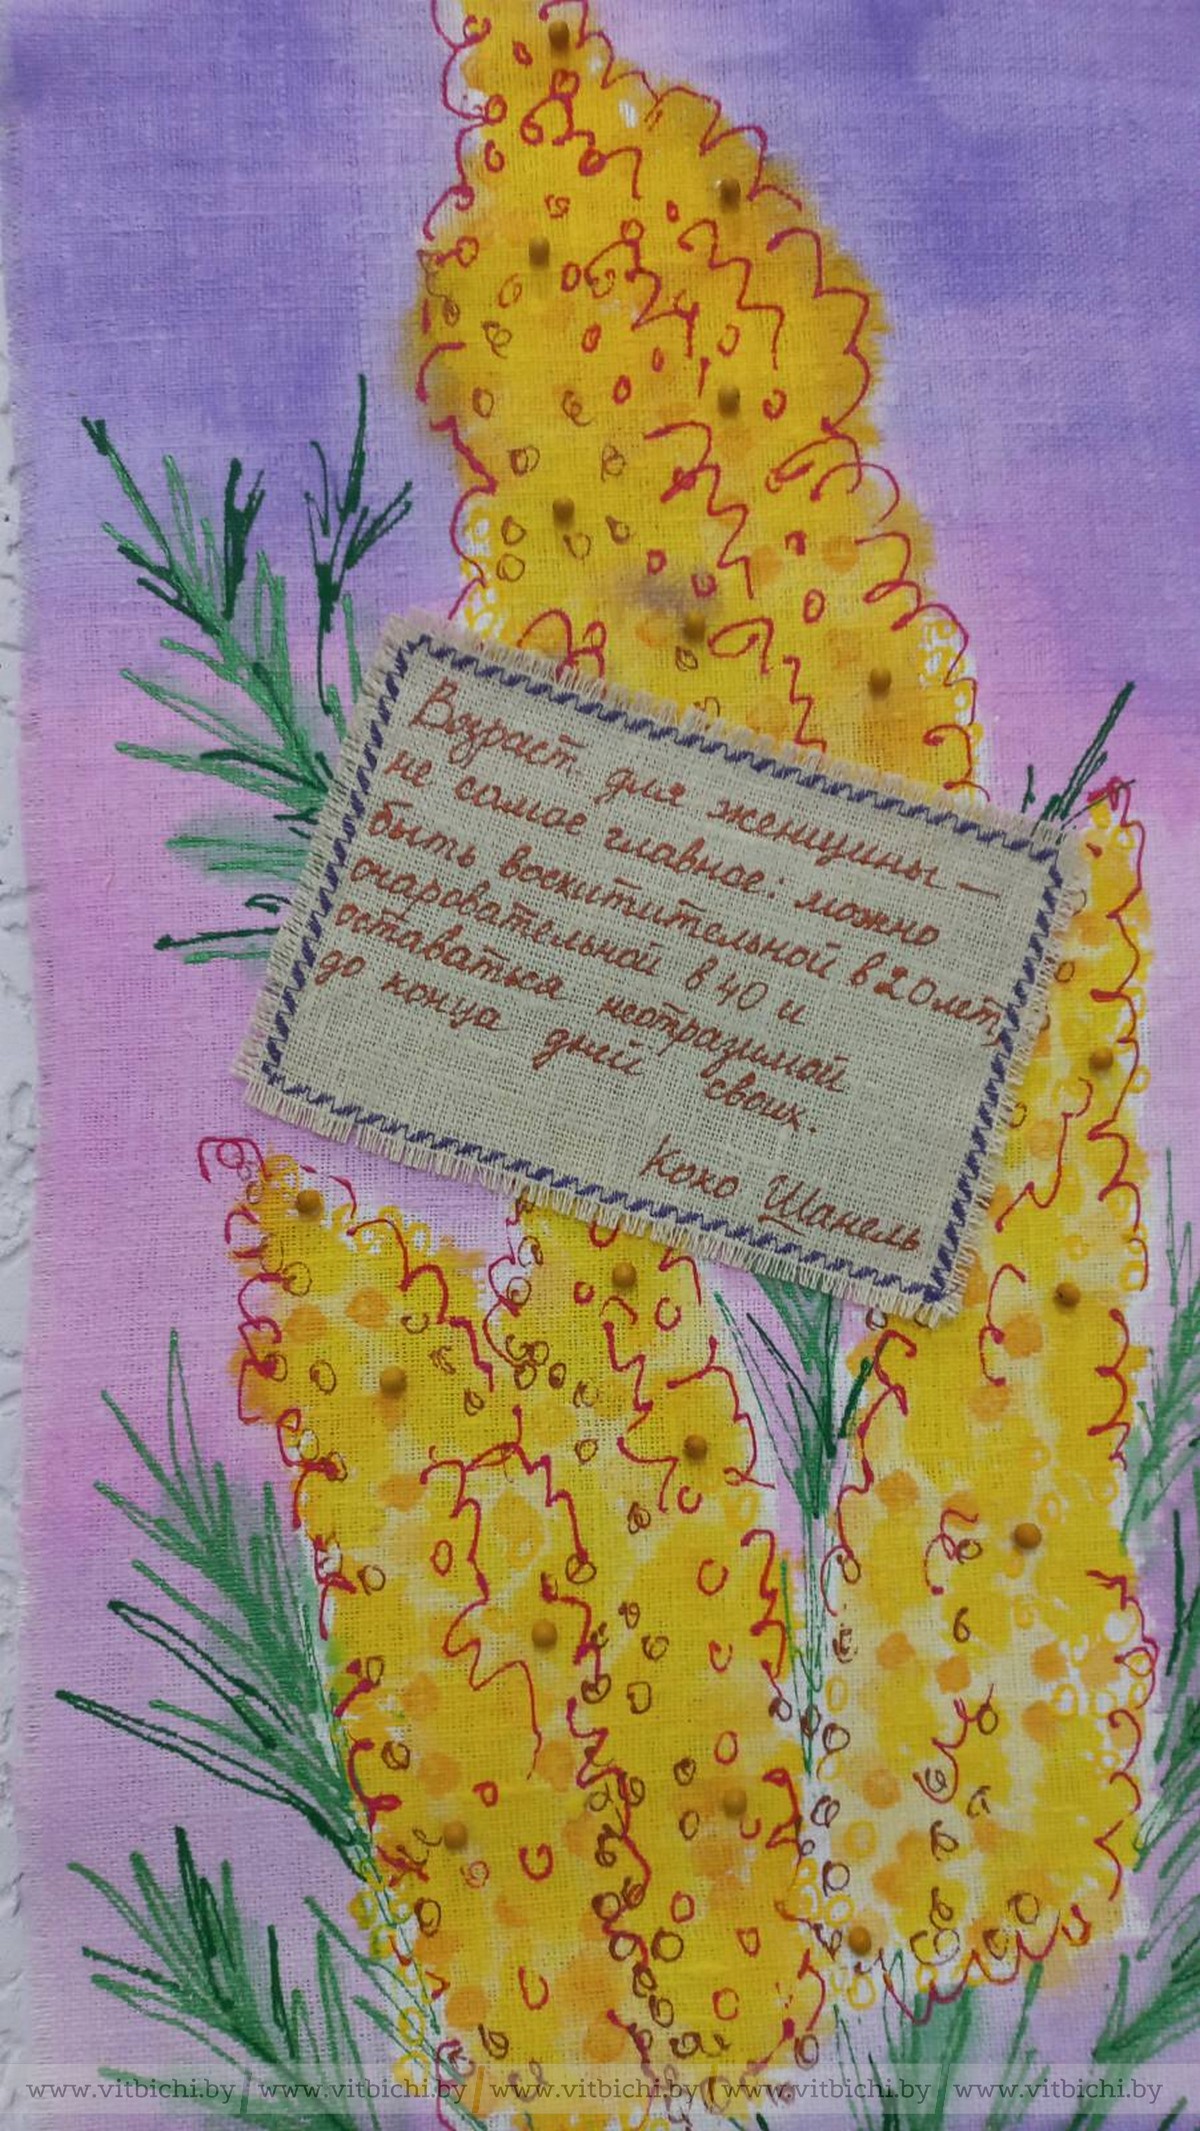 Возраст для женщины –
не самое главное: можно
быть восхитительной в 20 лет,
очаровательной в 40 и
оставаться неотразимой
до конца дней своих.
Коко Шанель
www.vitbichi.by www.vitbichi.by www.vitbichi.by www.vitbichi.by www.vitbichi.by